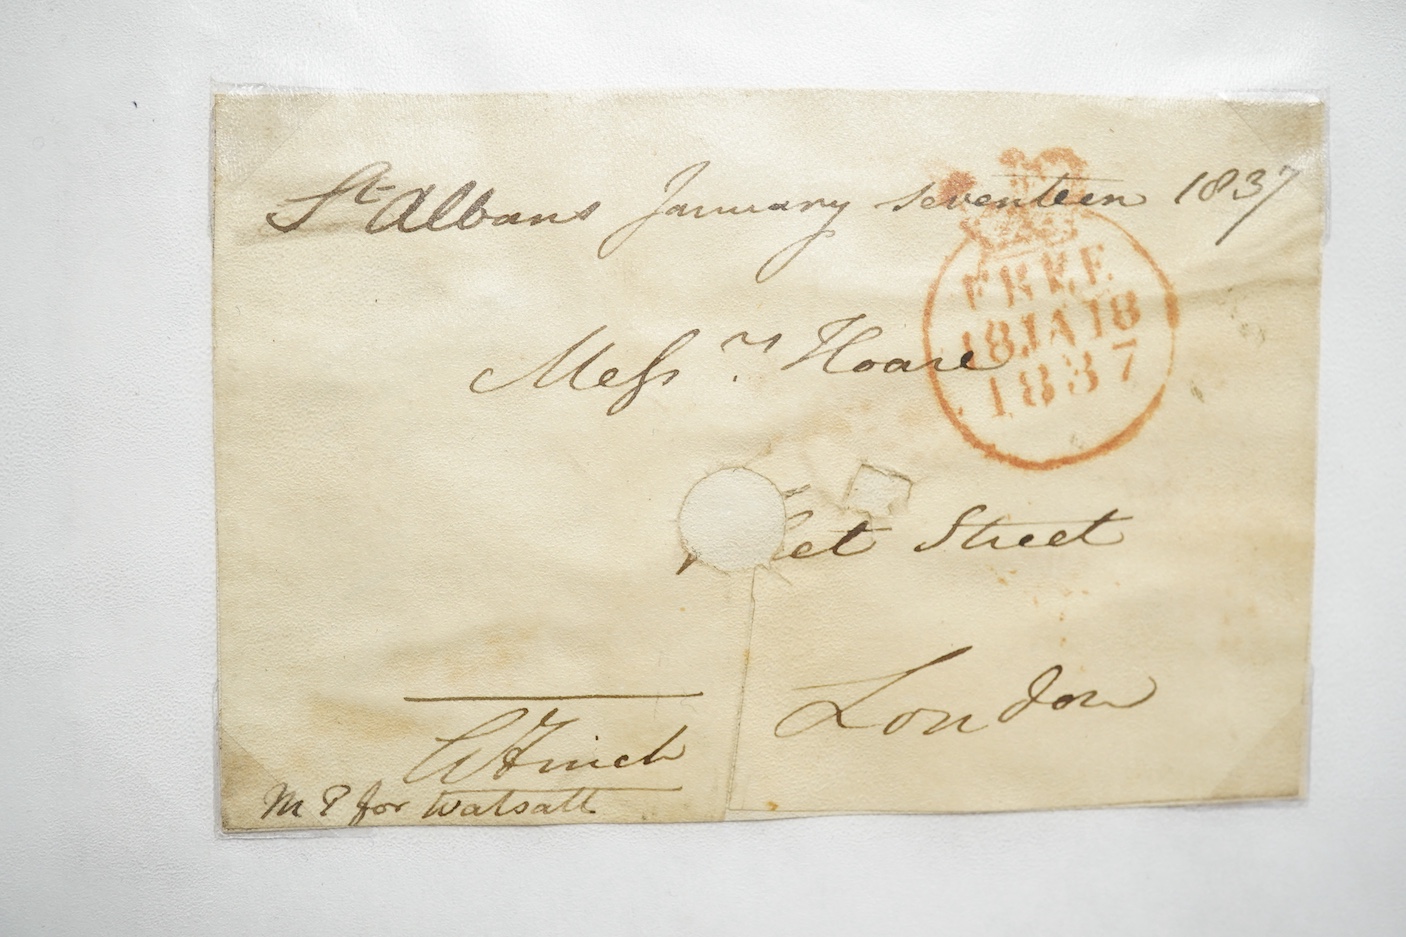 St Albans January seventeen 1837
FREE
18 JA 18
1837
Messrs Hoare
Street
London
Finch
M P for Walsall